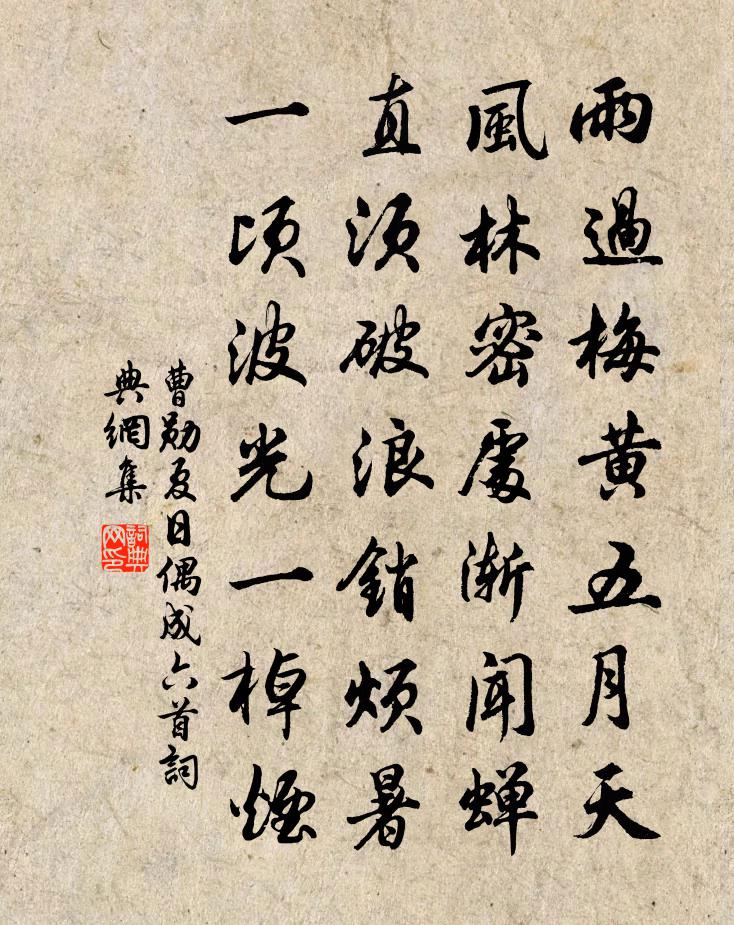 雨過梅黄五月天
風林密處漸聞蝉
直須破浪銷煩暑
一頃波光一棹煙
曹勛夏日偶成六首詞
典網集
詞典網印